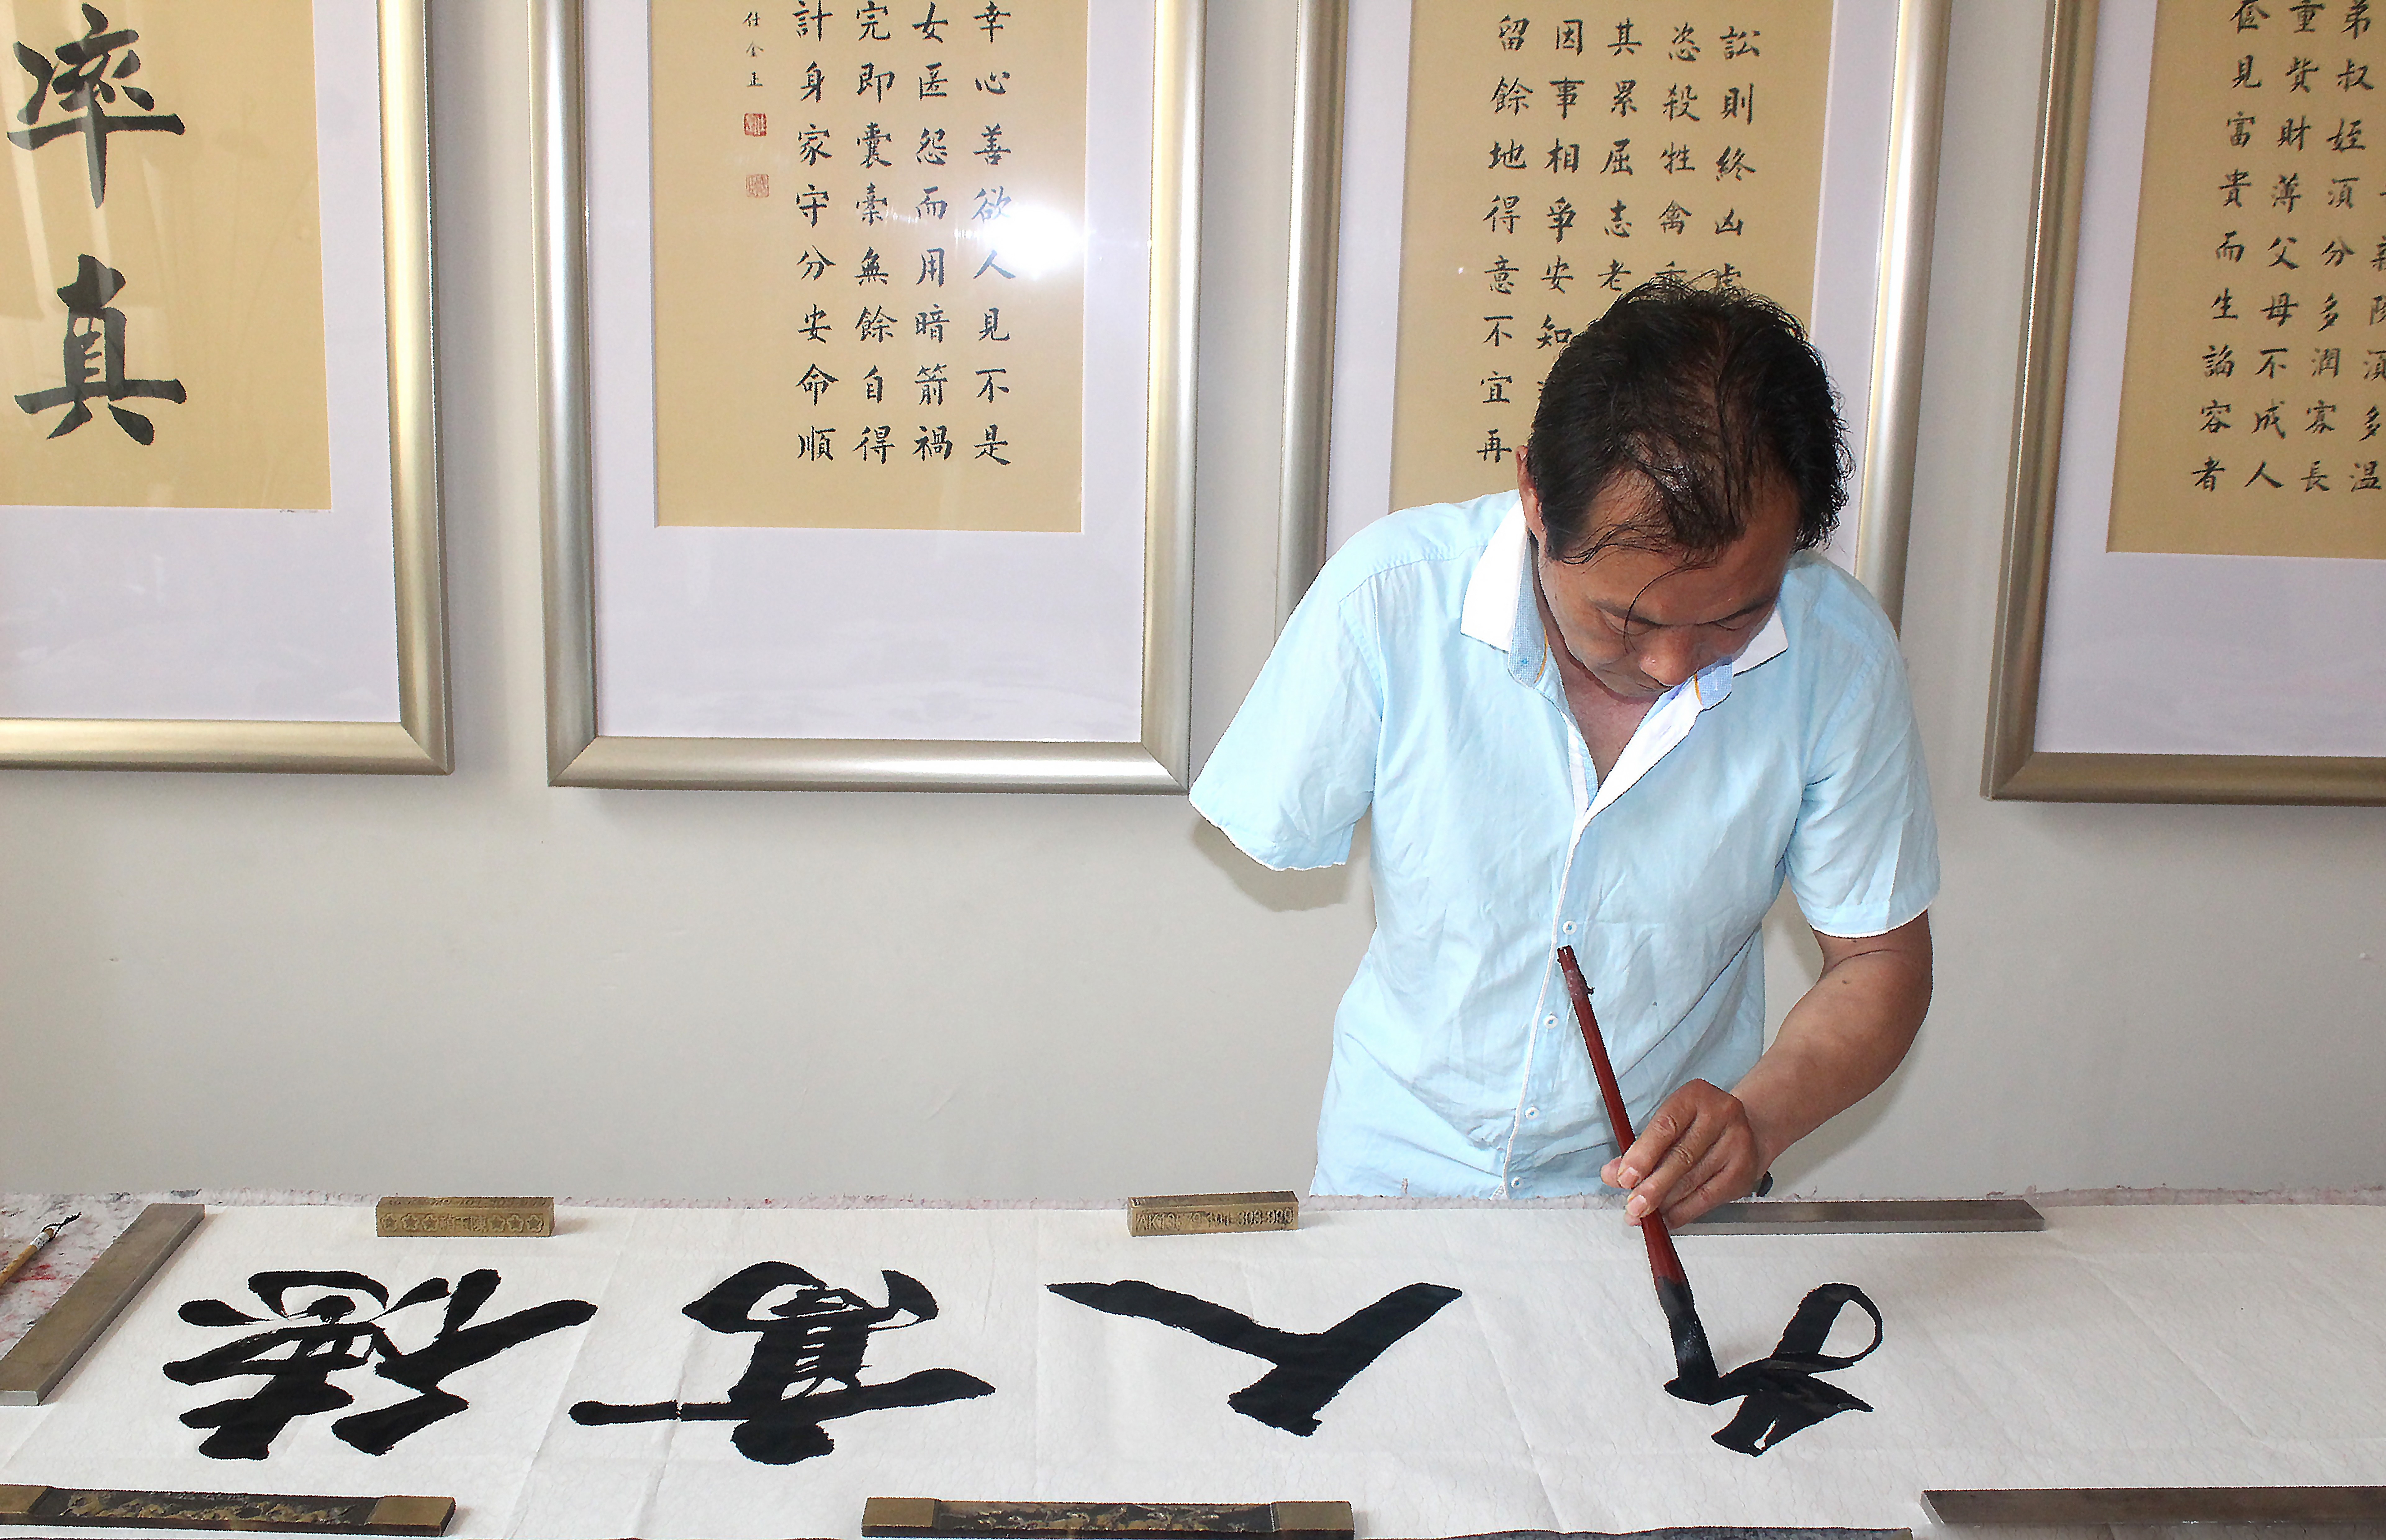 率真
幸心善欲人見不是
女匿怨而用暗箭禍
完即囊橐無餘自得
計身家守分安命順
仕全正
訟則終凶
恣殺牲禽
其累屈志老
因事相爭安知
留餘地得意不宜再
須多溫
弟叔姪須分多潤寡長
重貲財薄父母不成人
奩見富貴而生諂容者
德高人